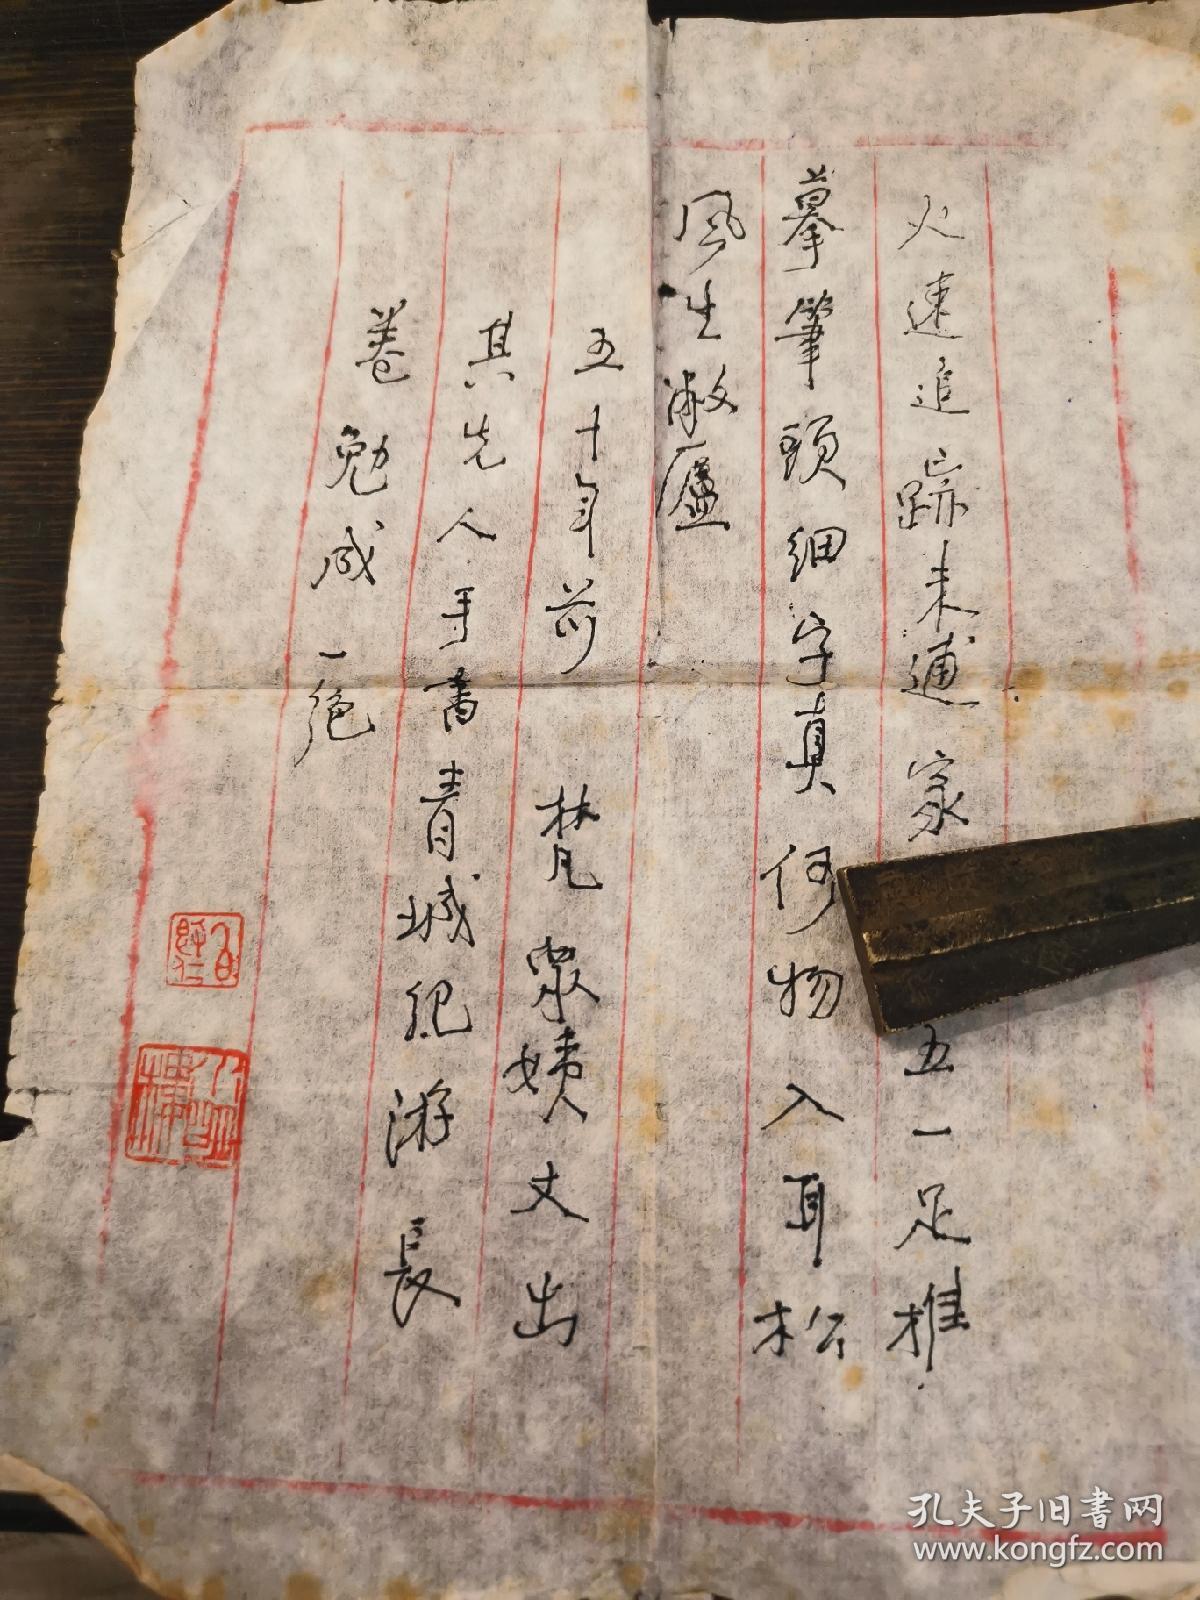 火速追亡跡未逋家五一足推
摹筆頭細字真何物入耳松
風生敝廬
五十年前 梵眾姨丈出
其先人手書青城紀游長
卷勉成一絕
孔夫子旧书网
www.kongfz.com